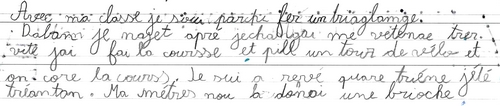 Avec ma classe je suis partie fer un triaglomge.
Dabano je naget apre jechangai me vetemae trer
vite jai fai la coursse et pill un tour de vello et
on core la courss. Je sui a rervé quare trième jété
tréantan. Ma métres nou la donai une brioche